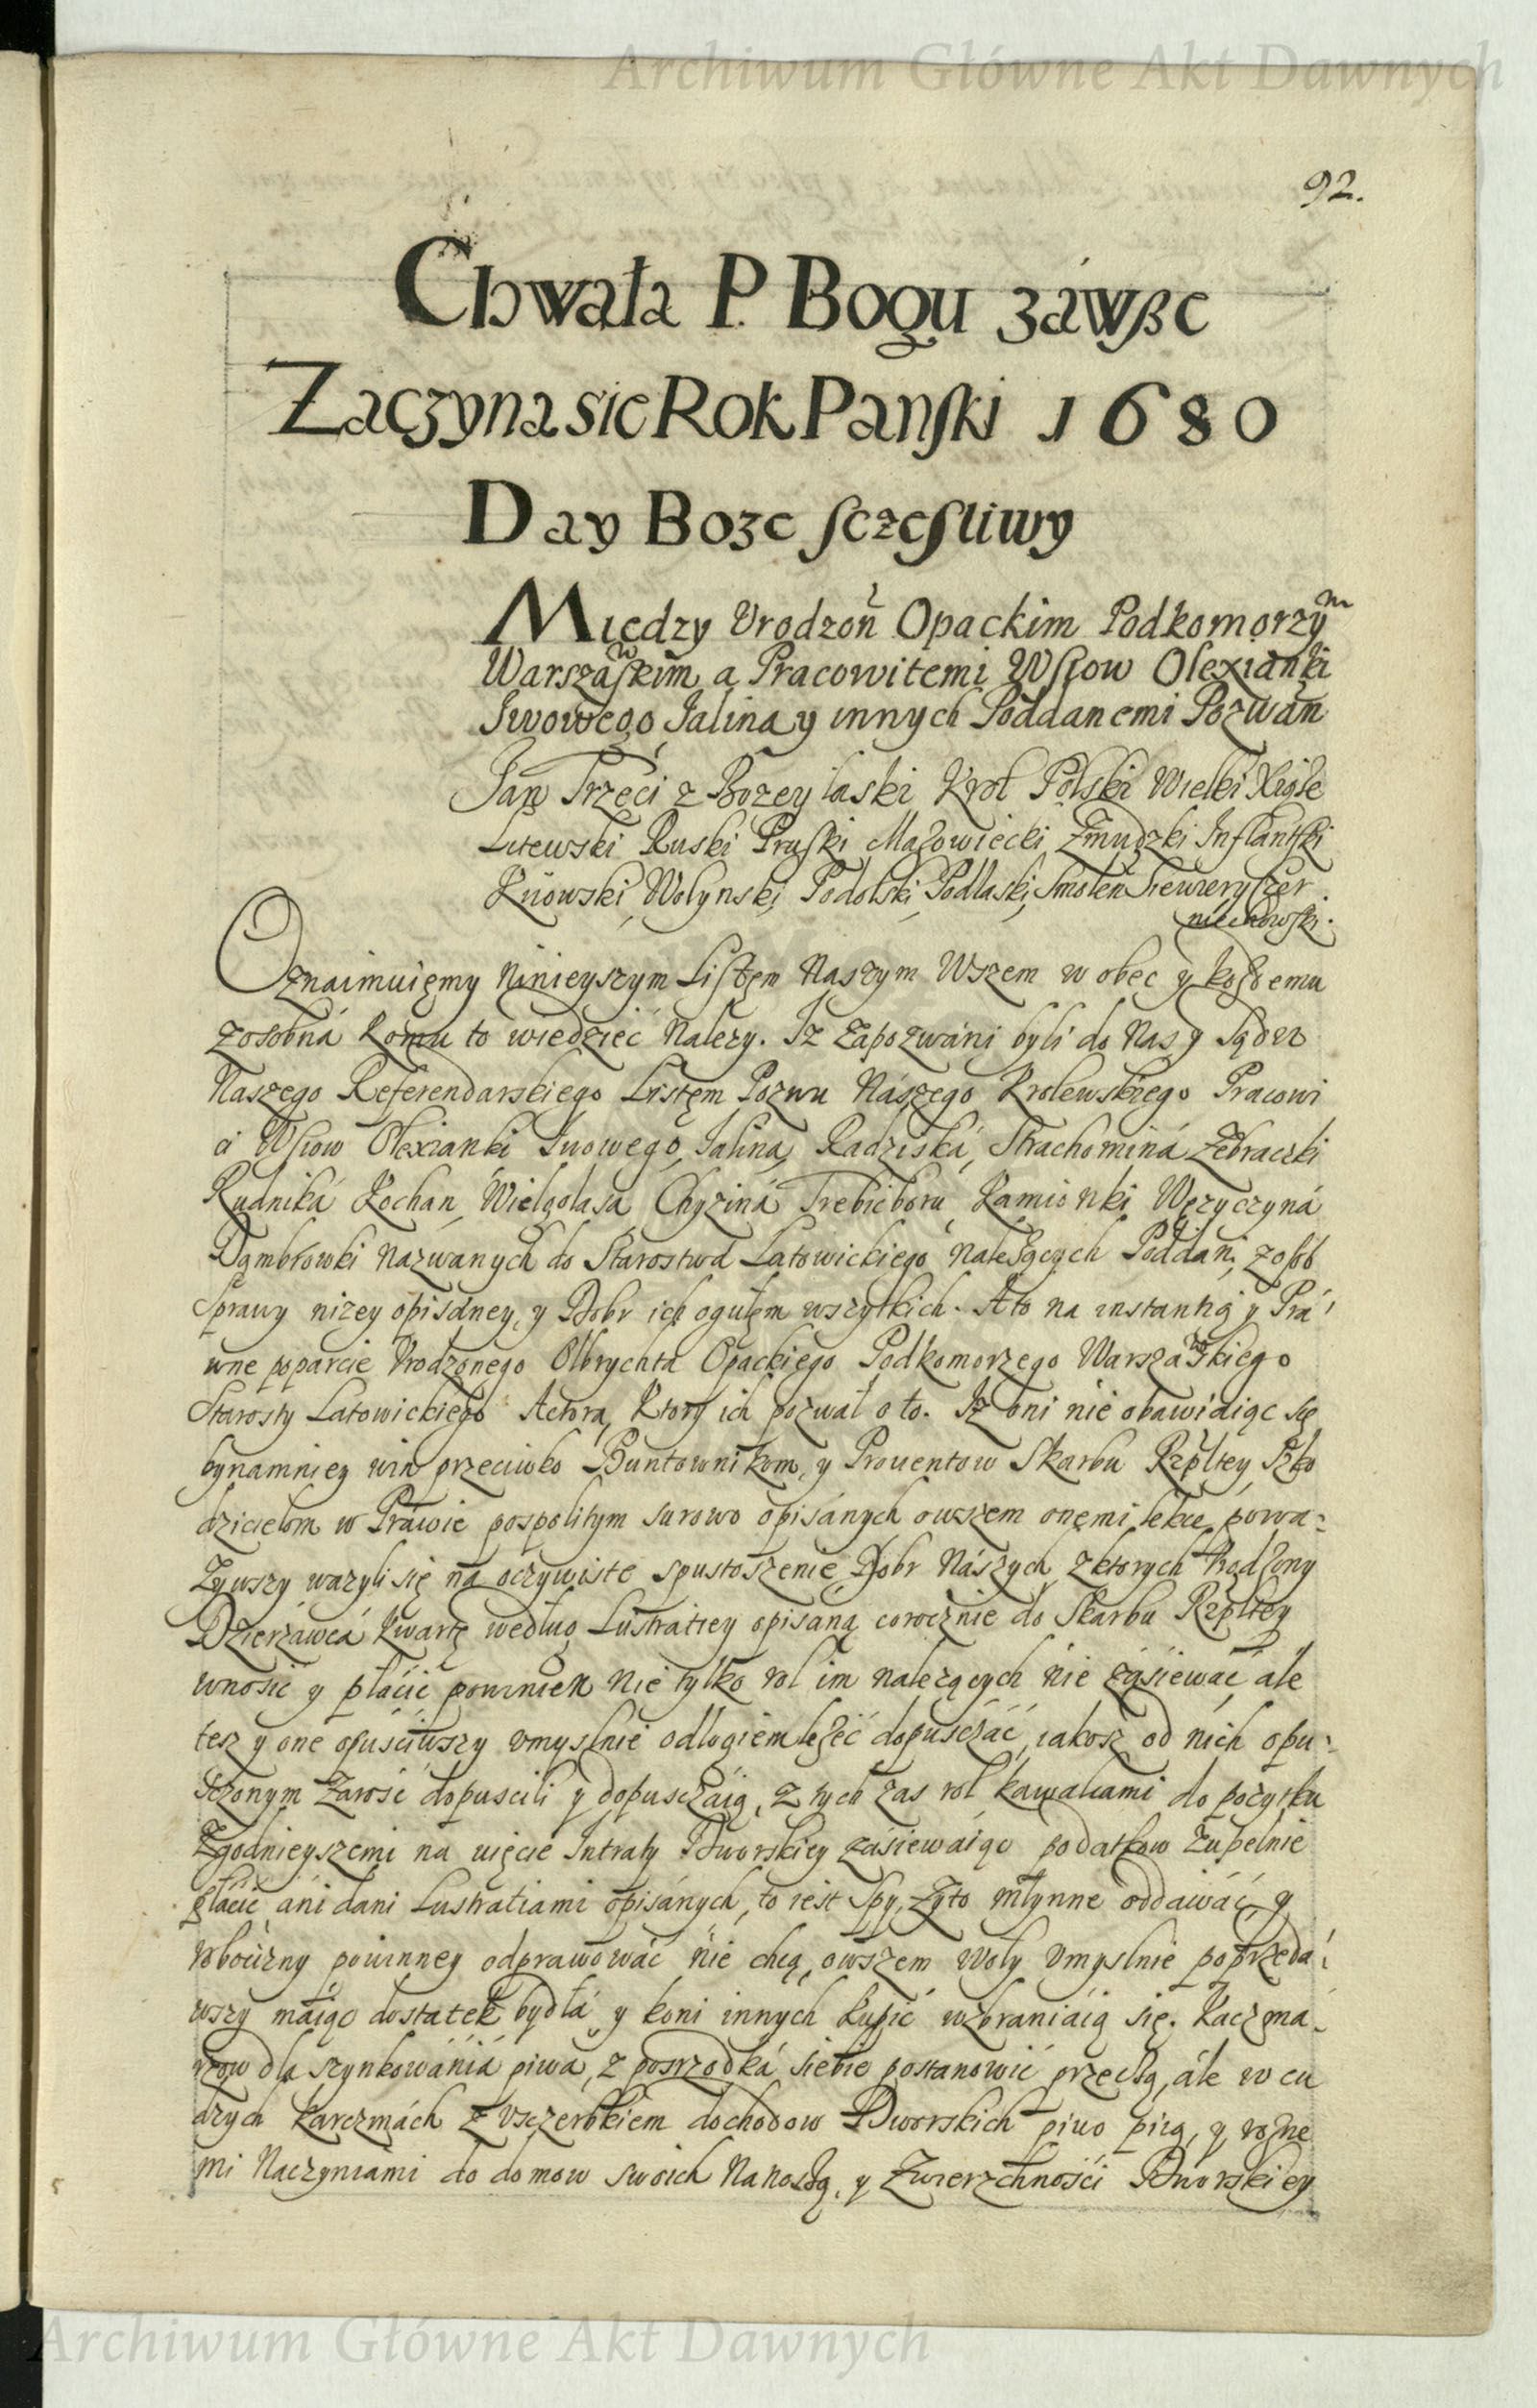 Archiwum Główne Akt Dawnych
92.
Chwała P. Bogu záwße
Zaczyna sie Rok Panſki 1680
Day Boze ſczeſliwy
Między Vrodzon Opackim Podkomorzym
Warszawſkim a Pracowitemi Wſiow Olexianki
Iwowego Jalina y innych Poddanemi Pozwan
Jan Trzeci z Bozey łaski Krol Polski Wielki Xiąże
Litewski Ruski Pruſki Mazowiecki Zmudzki Inflantſki
Kiiowski Wołynski Podolski Podlaski Smolen Siewiery Czer
niechowſki.
Oznaimuięmy Ninieyszym Liſtęm Naszym Wszem w obec y kożdemu
zosobná komu to wiedzieć Nalezy. Iz Zapozwáni byli do Nas y Sądu
Naszego Referendarskiego Listęm Pozwu Nászego Krolewskiego Pracowi
ci Wsiow Olexianki Iwowego, Jalina, Radziská, Strachominá Żebraczki
Rudniká Kochan, Wielgolasa Chyziná Trebieboru Kamionki Węzyczyná
Dąmbrowki Nazwanych do Starostwa Latowickiego Należących Poddani, z osób
Sprawy nizey opisáney, y Dobr ich ogułem wszytkich. A to na instantią y Prá
wne poparcie Vrodzonego Olbrychta Opackiego Podkomorzego Warszawskiego
Starosty Latowickiego Actora, Ktory ich pozwał o to. Iz oni nie obawiáiąc się
bynamniey win przeciwko Buntownikom, y Prouentow Skarbu Rzpltey Szko
dzicielom w Práwie pospolitym surowo opisánych owszem onemi lekce powa-
żywszy wazyli się na oczywiste spustoszenie Dobr Nászych, z ktorych Vrodzony
Dzierzáwcá Kwartę według Lustratiey opisáną corocznie do Skarbu Rzpltey
wnosić y płácić powinien Nie tylko rol im nalezących nie zásiewáć ále
tesz y one opuściwszy vmyslnie odlogiem leżeć dopusczáć, iakosz od nich opu-
sczonym Zarosć dopuscili y dopusczáią, z tych zas rol kawałcami do pozytku
Zgodnieyszemi na uięcie Intraty Dworskiey zásiewaiąc podatkow Zupełnie
płácić áni dani Lustratiami opisánych, to iest Spy, Zyto młynne oddawáć, y
roboćizny powinney odprawowáć nie chcą, owszem Woły Vmyslnie poprzedá
wszy máiąc dostatek bydłá y koni innych kupić wzbraniáią się. Kaczma-
rzow dla szynkowániá piwá, z posrzodká siebie postanowić przeczą, ále w cu
dzych karczmách z vsczerbkiem dochodow Dworskich piwo piią, y rożne
mi Naczyniami do domow swoich Nanoszą, y Zwierzchnośći Dworskiey
Archiwum Główne Akt Dawnych